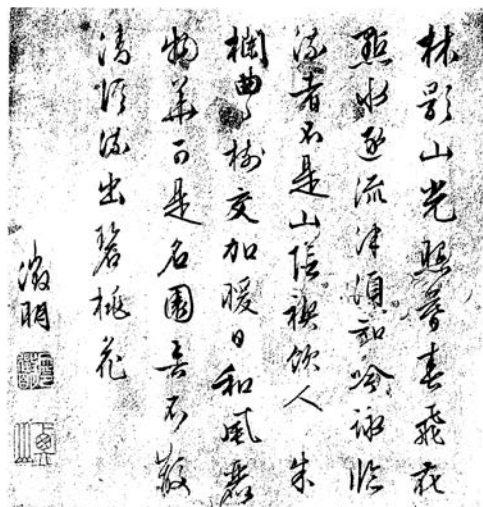 林影山光照暮春飛花
點水逐流津須知吟詠臨
流者不是山陰禊飲人 朱
欄曲々樹交加暖日和風麗
物華可是名園不
清流出碧桃花
徵明